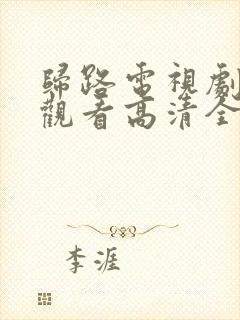 歸路電視劇
觀看高清全
李涯